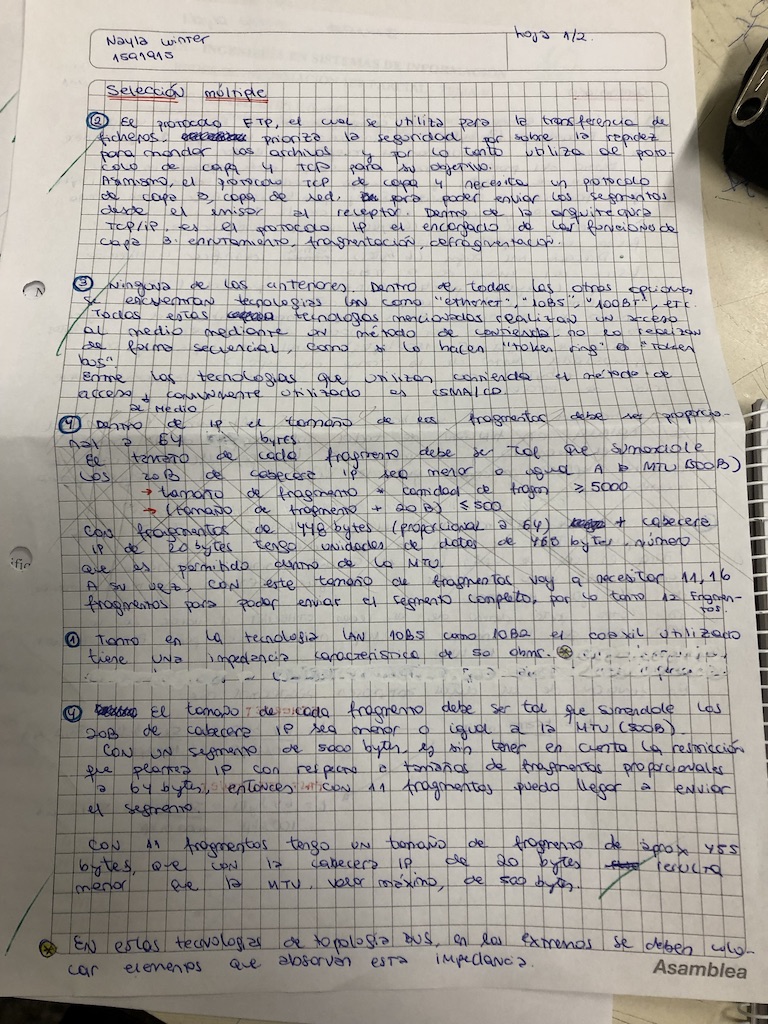 Nayla Winter
1591915
hoja 1/2.
Selección múltiple
② El protocolo FTP, el cual se utiliza para la transferencia de
ficheros, prioriza la seguridad por sobre la rapidez
para mandar los archivos y por lo tanto utiliza de proto-
colo de capa 4 TCP para su objetivo.
Asimismo, el protocolo TCP de capa 4 necesita un protocolo
de capa 3, capa de red, para poder enviar los segmentos
desde el emisor al receptor. Dentro de la arquitectura
TCP/IP, es el protocolo IP el encargado de las funciones de
capa 3: enrutamiento, fragmentación, defragmentación.
③ Ninguna de las anteriores. Dentro de todas las otras opciones
se encuentran tecnologías LAN como "ethernet", "10B5", "100BT", etc.
Todas estas tecnologías mencionadas realizan un acceso
al medio mediante un método de contienda, no lo realizan
de forma secuencial, como si lo hacen "token ring" o "token
bus"
Entre las tecnologías que utilizan contienda el método de
acceso al medio comunmente utilizado es CSMA/CD
④ Dentro de IP el tamaño de los fragmentos debe ser proporcio-
nal a 64 bytes
El tamaño de cada fragmento debe ser tal que sumandole
los 20B de cabecera IP sea menor o igual A la MTU (500B)
→ tamaño de fragmento * cantidad de fragm ≥ 5000
→ (tamaño de fragmento + 20B) ≤ 500
Con fragmentos de 448 bytes (proporcional a 64) + cabecera
IP de 20 bytes tengo unidades de datos de 468 bytes, número
que es permitido dentro de la MTU.
A su vez, con este tamaño de fragmentos voy a necesitar 11,16
fragmentos para poder enviar el segmento completo, por lo tanto 12 fragmen-
tos.
① Tanto en la tecnología LAN 10B5 como 10B2 el coaxil utilizado
tiene una impedancia característica de 50 ohms. ⊛
④ El tamaño de cada fragmento debe ser tal que sumandole los
20B de cabecera IP sea menor o igual a la MTU (500B).
Con un segmento de 5000 bytes y sin tener en cuenta la restricción
que plantea IP con respecto a tamaños de fragmentos proporcionales
a 64 bytes, entonces con 11 fragmentos puedo llegar a enviar
el segmento.
Con 11 fragmentos tengo un tamaño de fragmento de aprox 455
bytes, que con la cabecera IP de 20 bytes resulta
menor que la MTU, valor máximo, de 500 bytes.
⊛ EN estas tecnologías de topología BUS, en los extremos se deben colo-
car elementos que absorban esta impedancia.
Asamblea